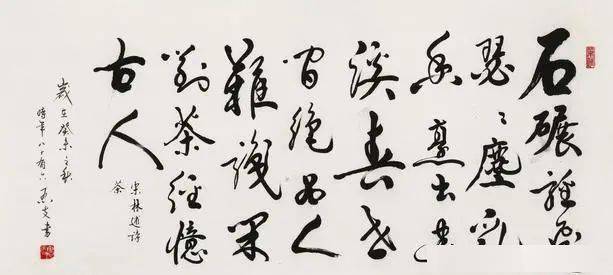 石碾輕飛
瑟〻塵乳
香烹出建
溪春世
間絕品人
難識閑
對茶經憶
古人
宋林逋詩
茶
歲在癸未之秋
時年八十有六 書